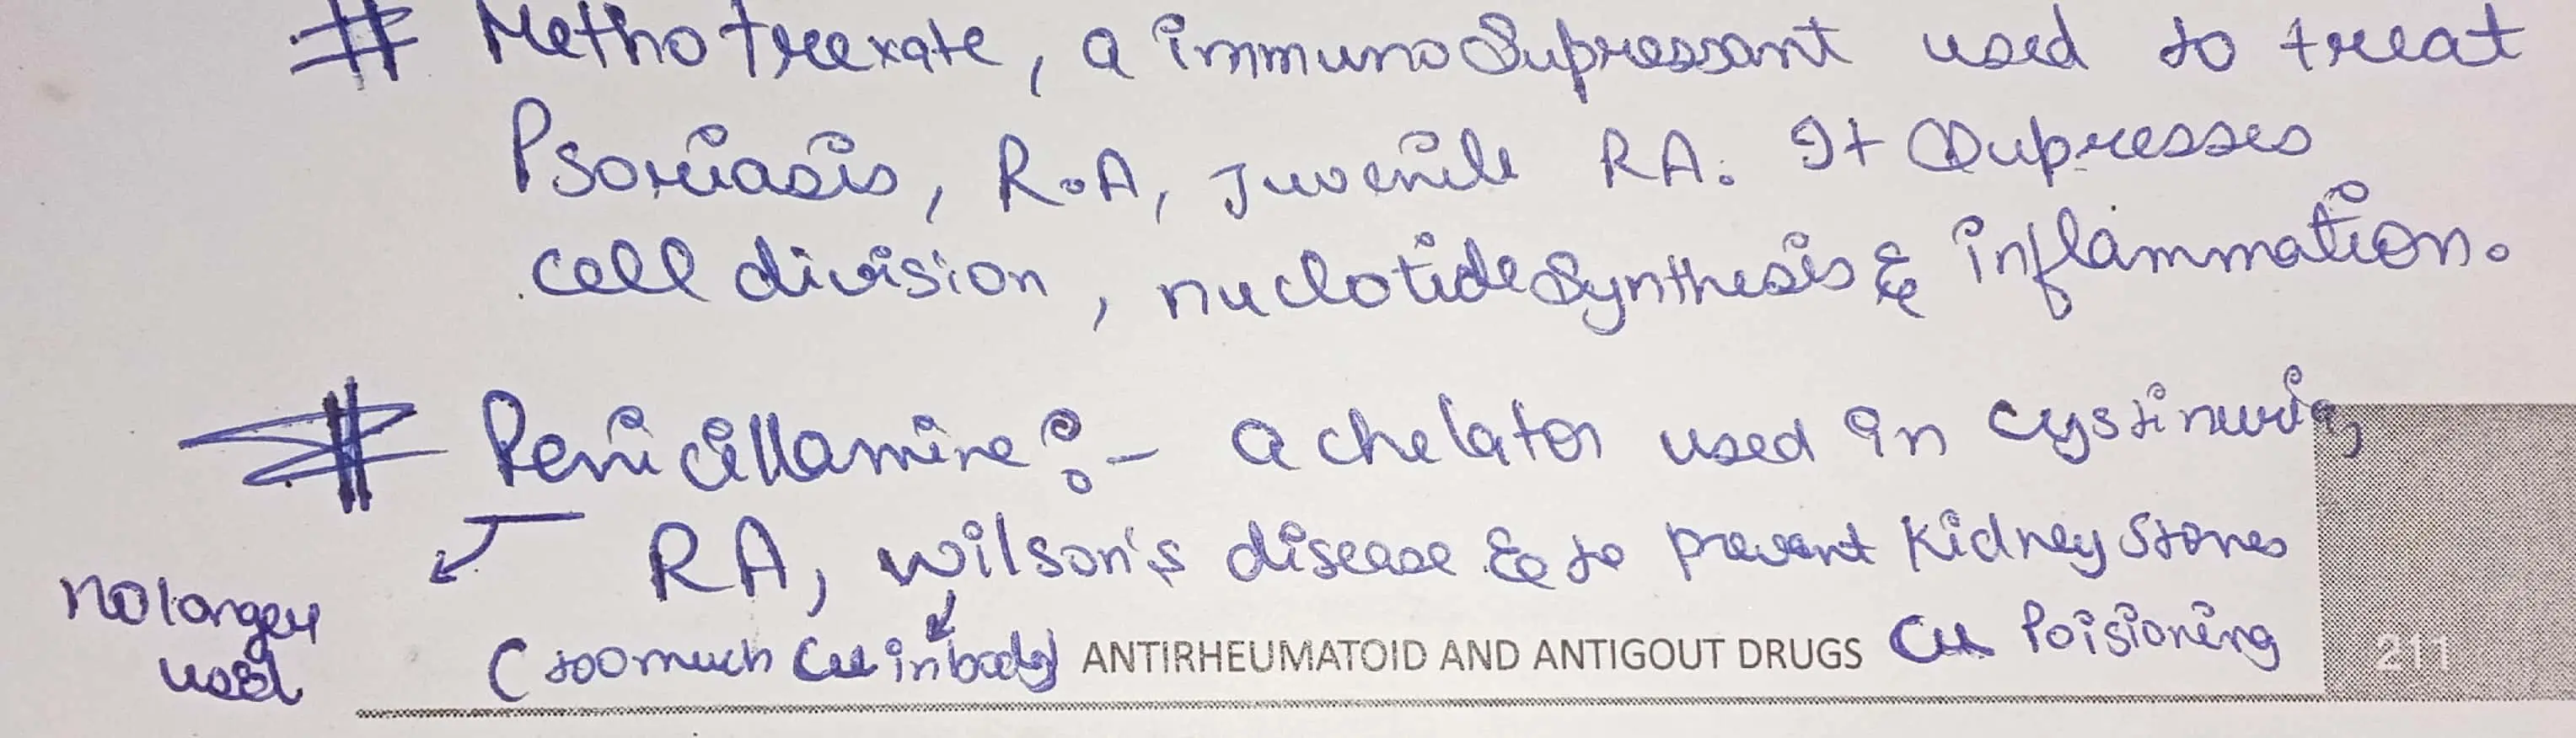 # Methotrexate, a immunoSupressant used to treat
Psoriasis, R.A, Juvenile RA. It Supresses
cell division, nuclotide Synthesis & inflammation.
# Penicillamine :- a chelator used in cystinuria,
RA, wilson's disease & to prevent Kidney stones
no longer used
(too much Cu in body) ANTIRHEUMATOID AND ANTIGOUT DRUGS Cu Poisioning 211